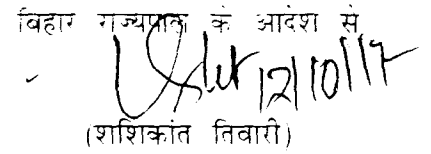 बिहार राज्यपाल के आदेश से
12/10/17
(शशिकांत तिवारी)